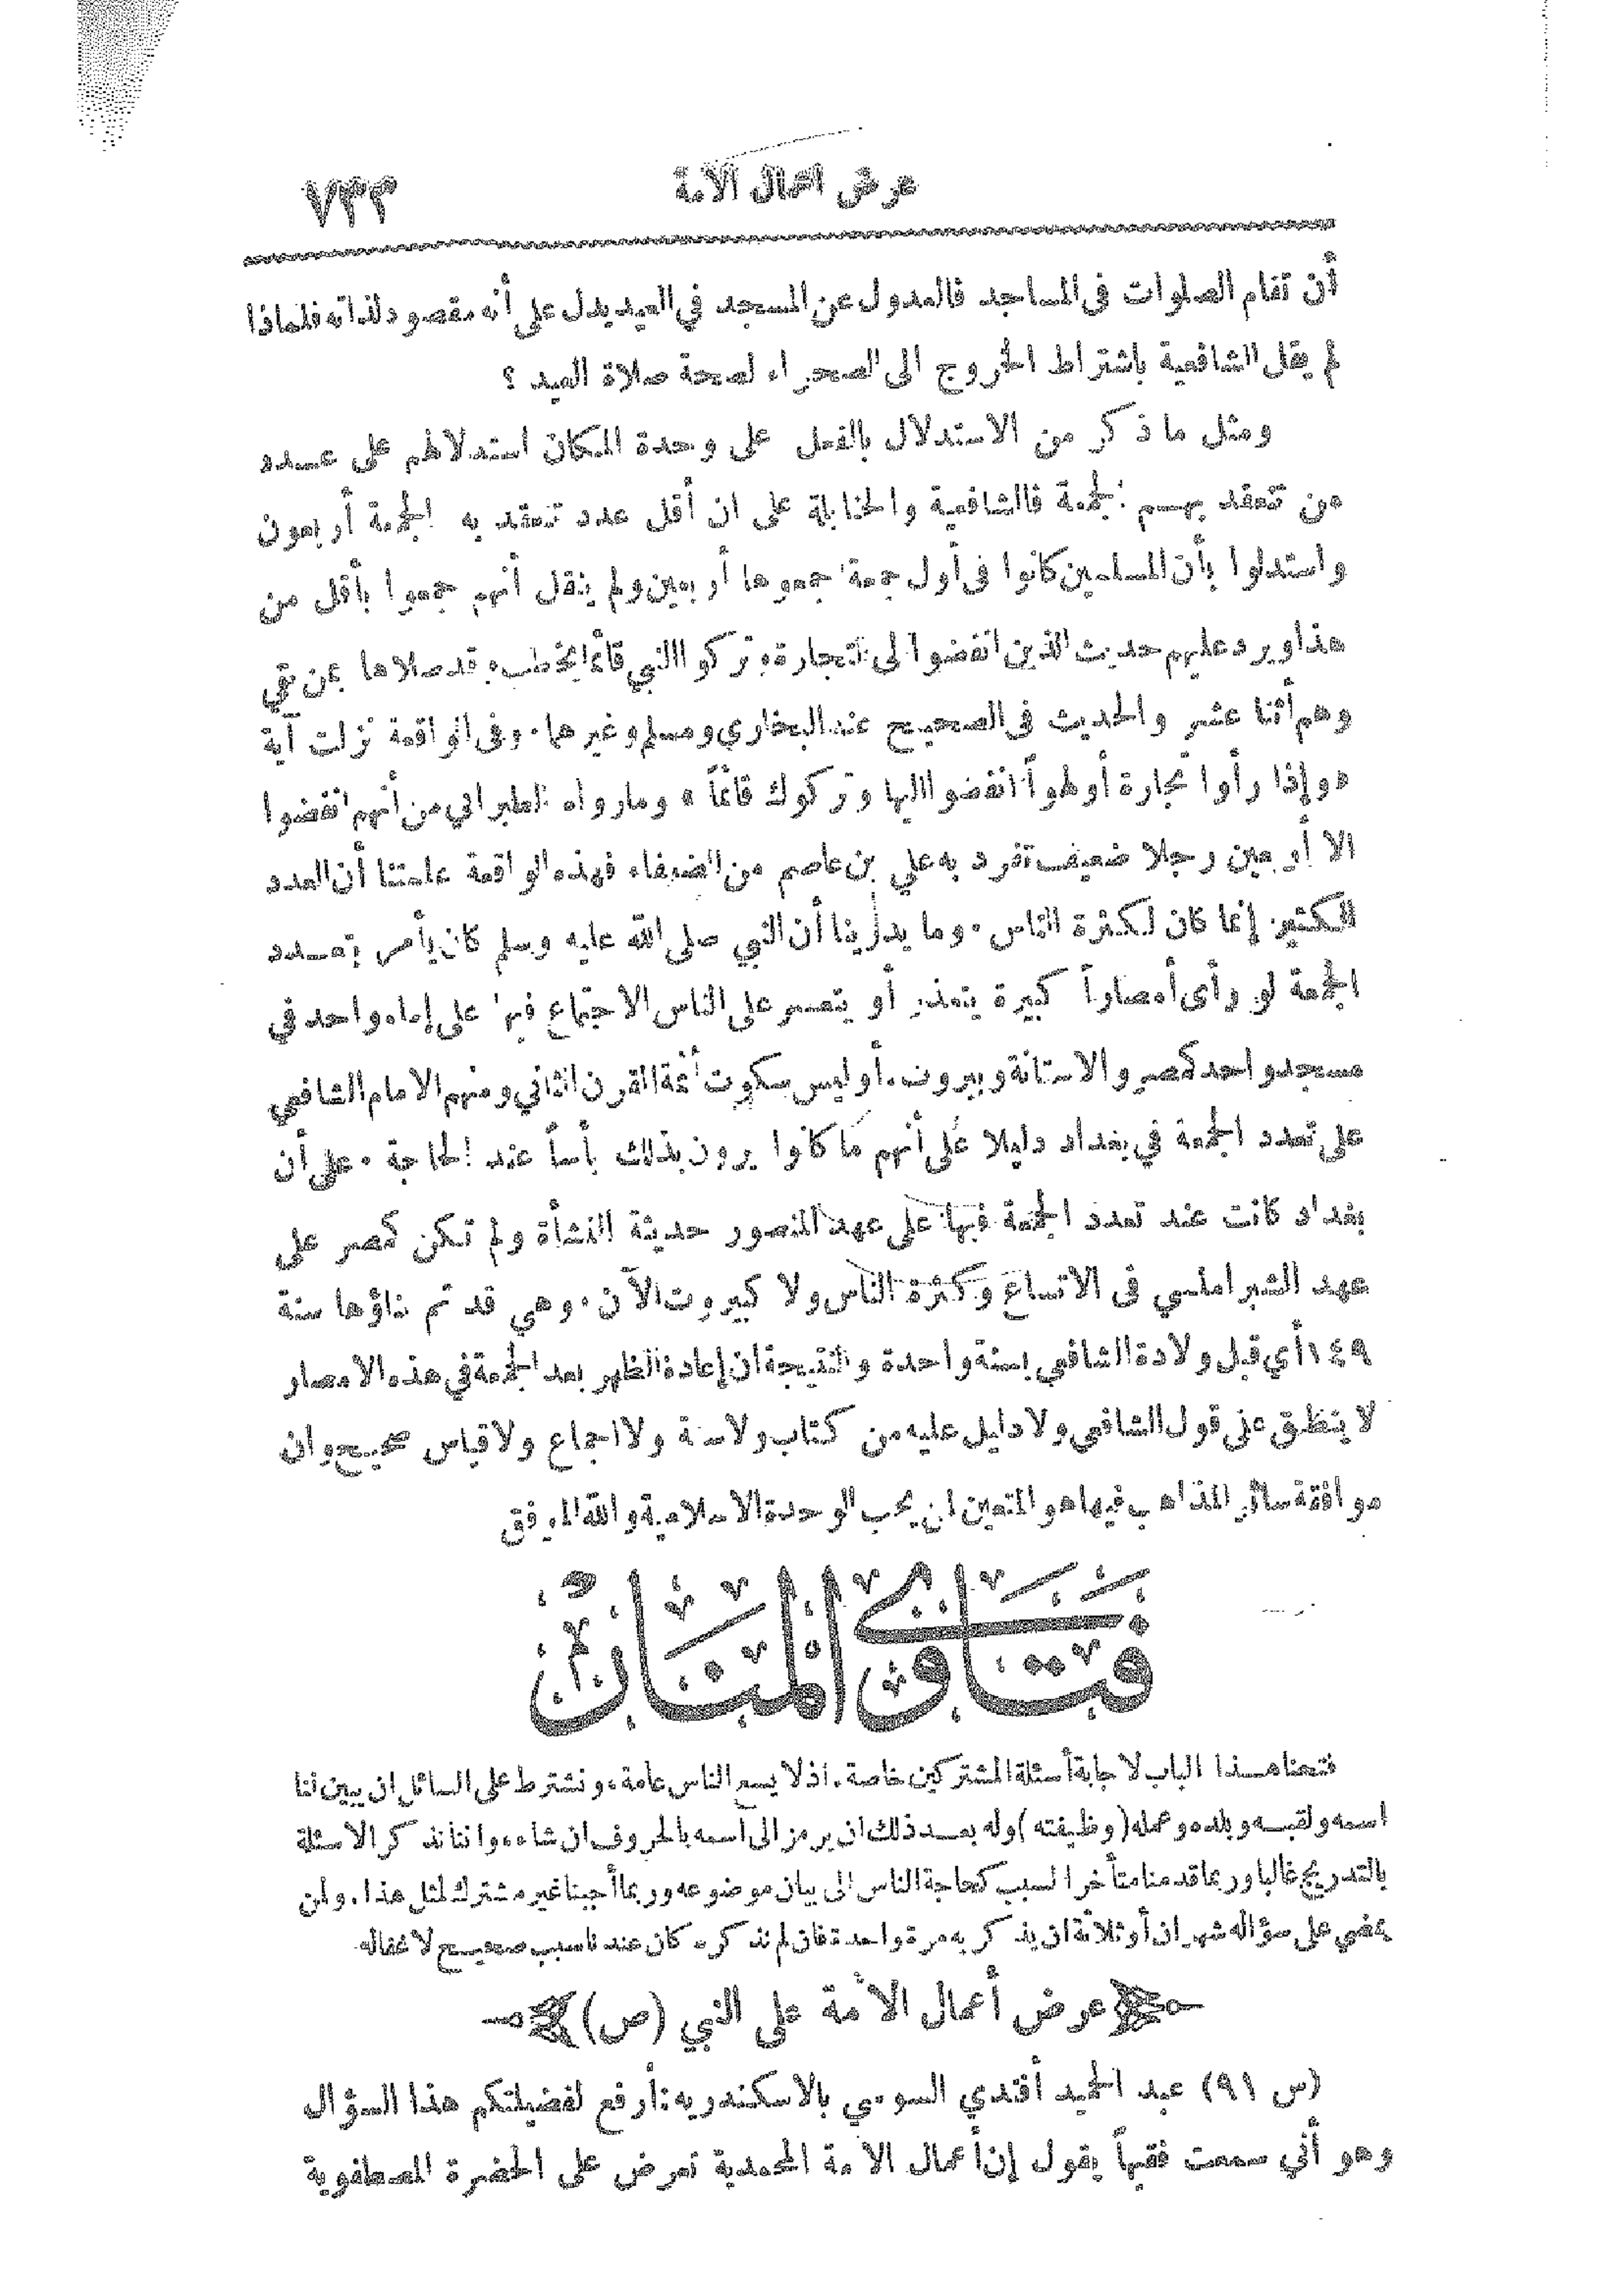 عرض اعمال الامة ٧٣٣
أن تقام الصلوات في المساجد فالعدول عن المسجد في العيد يدل على أنه مقصود لذاته فلماذا
لم يقل الشافعية باشتراط الخروج الى الصحراء لصحة صلاة العيد ؟
ومثل ما ذكر من الاستدلال بالفعل على وحدة المكان استدلالهم على عدد
من تنعقد بهم الجمعة فالشافعية والحنابلة على ان أقل عدد تنعقد به الجمعة أربعون
واستدلوا بأن المسلمين كانوا في أول جمعة جمعوها أربعين ولم ينقل أنهم جمعوا بأقل من
هذا ويرد عليهم حديث الذين انفضوا الى التجارة وتركوا النبي قائما يخطب وقد صلاها بمن بقي
وهم أثنا عشر والحديث في الصحيح عند البخاري ومسلم وغيرهما . وفي الواقعة نزلت آية
«وإذا رأوا تجارة أو لهواً انفضوا اليها وتركوك قائماً » وما رواه الطبراني من أنهم انفضوا
الا أربعين رجلا ضعيف تفرد به علي بن عاصم من الضعفاء فهذه الواقعة علمتنا أن العدد
الكثير إنما كان لكثرة الناس . وما يدرينا أن النبي صلى الله عليه وسلم كان يأمر بتعدد
الجمعة لو رأى أمصاراً كبيرة يتعذر أو يتعسر على الناس الاجتماع فيها على إمام واحد في
مسجد واحد كمصر والاستانة وبيروت . أو ليس سكوت أئمة القرن الثاني ومنهم الامام الشافعي
على تعدد الجمعة في بغداد دليلا على أنهم ما كانوا يرون بذلك بأساً عند الحاجة . على أن
بغداد كانت عند تعدد الجمعة فيها على عهد المنصور حديثة النشأة ولم تكن كمصر على
عهد الشبراملسي في الاتساع وكثرة الناس ولا كبيروت الآن . وهي قد تم بناؤها سنة
١٤٩ أي قبل ولادة الشافعي بسنة واحدة والنتيجة ان إعادة الظهر بعد الجمعة في هذه الامصار
لا ينطبق على قول الشافعي ولا دليل عليه من كتاب ولا سنة ولا اجماع ولا قياس صحيح وان
موافقة سائر المذاهب فيها هو المتعين لمن يحب الوحدة الاسلامية والله الموفق
فتاوى المنار
فتحنا هذا الباب لاجابة أسئلة المشتركين خاصة ، اذ لا يسع الناس عامة ، ونشترط على السائل ان يبين لنا
اسمه ولقبه وبلده وعمله ( وظيفته ) وله بعد ذلك ان يرمز الى اسمه بالحروف ان شاء ، واننا نذكر الاسئلة
بالتدريج غالبا وربما قدمنا متأخرا لسبب كحاجة الناس الى بيان موضوعه وربما أجبنا غير مشترك لمثل هذا . ولمن
يمضي على سؤاله شهران أو ثلاثة ان يذكر به مرة واحدة فان لم نذكره كان عندنا سبب صحيح لاغفاله
عرض أعمال الامة على النبي (ص)
(س ٩١) عبد الحميد أفندي السوسي بالاسكندريه : أرفع لفضيلتكم هذا السؤال
وهو أني سمعت فقيهاً يقول إن أعمال الامة المحمدية تعرض على الحضرة المصطفوية